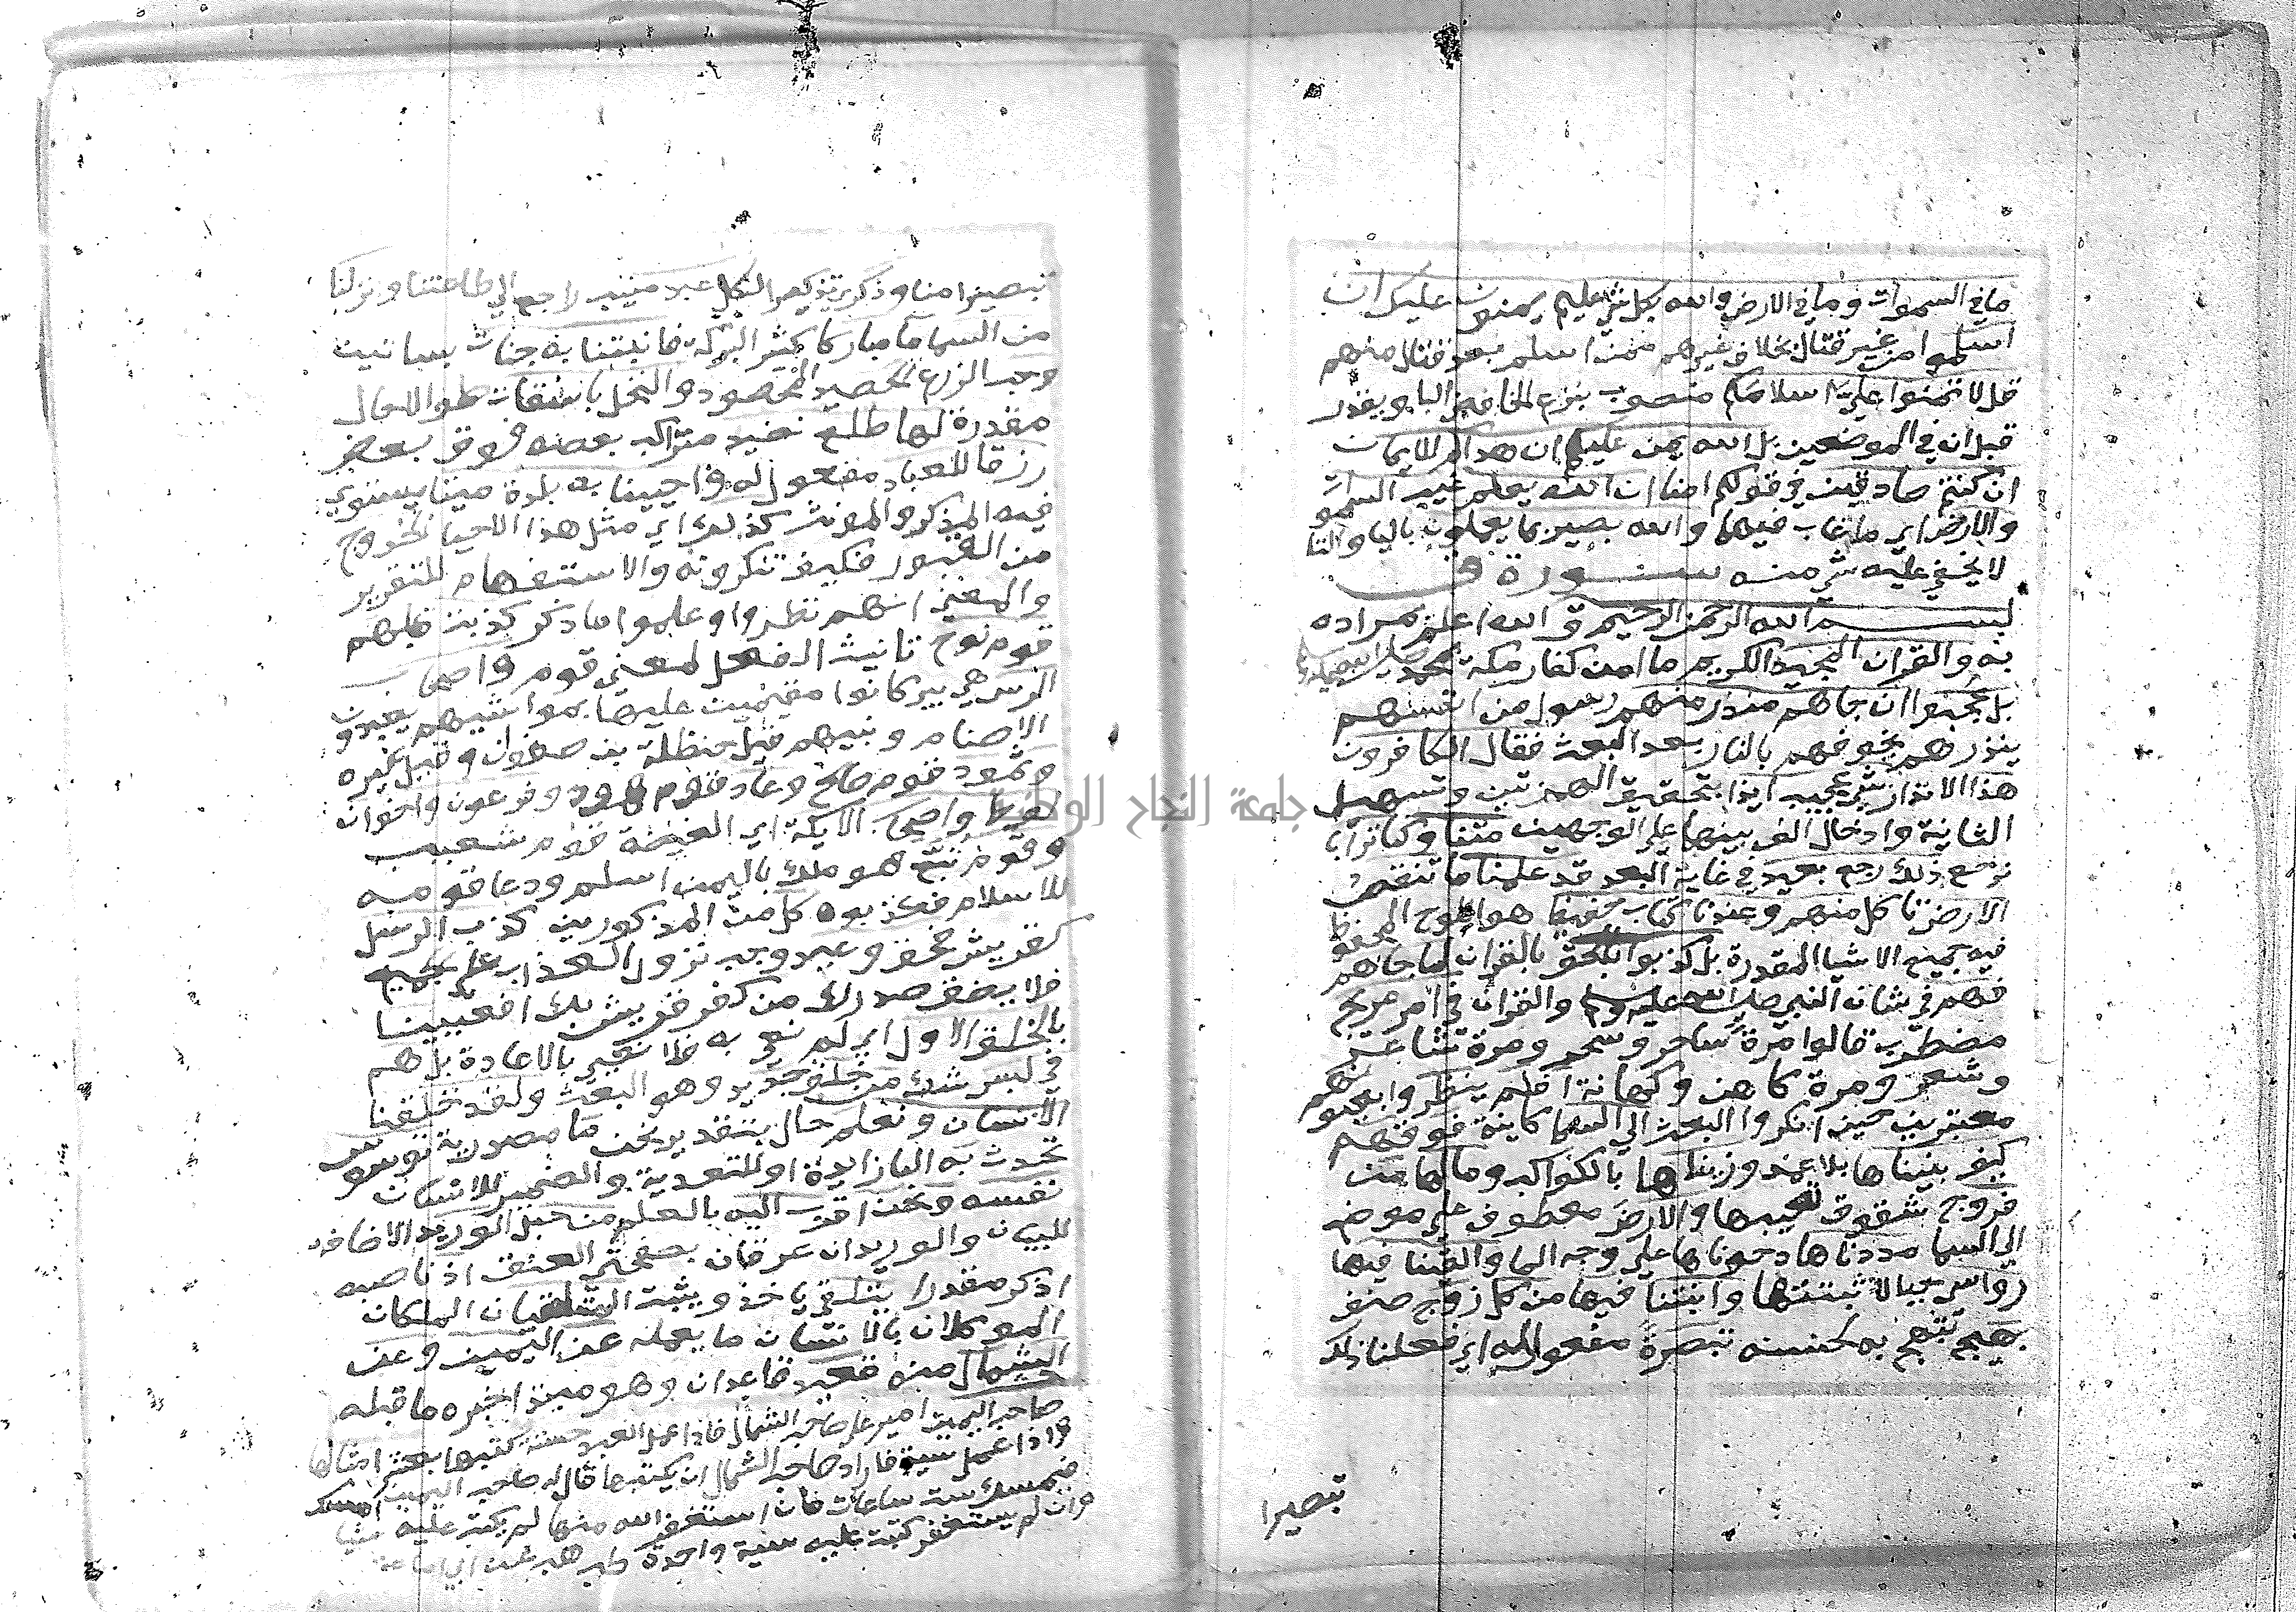 ما في السموات وما في الارض والله بكل شي عليم يمنون عليك ان
اسلموا من غير قتال بخلاف غيرهم ممن اسلم بعد قتال منهم
قل لا تمنوا علي اسلامكم منصوب بنزع الخافض البا ويقدر
قبل ان في الموضعين بل الله يمن عليكم ان هداكم للايمان
ان كنتم صادقين في قولكم امنا ان الله يعلم غيب السموات
والارض اي ما غاب فيهما والله بصير بما يعملون باليا والتا
لا يخفى عليه شي منه سورة ق
بسم الله الرحمن الرحيم ق الله اعلم بمراده
به والقران المجيد الكريم ما امن كفار مكة بمحمد صلى الله عليه وسلم
بل عجبوا ان جاهم منذر منهم رسول من انفسهم
ينذرهم يخوفهم بالنار بعد البعث فقال الكافرون
هذا الانذار شي عجيب ايذا بتحقيق الهمزتين وتسهيل
الثانية وادخال الف بينهما على الوجهين متنا وكنا ترابا
نرجع ذلك رجع بعيد في غاية البعد قد علمنا ما تنقص
الارض تاكل منهم وعندنا كتاب حفيظ هو اللوح المحفوظ
فيه جميع الاشيا المقدرة بل كذبوا بالحق بالقران لما جاهم
فهم في شان النبي صلى الله عليه وسلم والقران في امر مريج
مضطرب قالوا مرة ساحر وسحر ومرة شاعر
وشعر ومرة كاهن وكهانة افلم ينظروا بعيونهم
معتبرين حين انكروا البعث الى السما كاينة فوقهم
كيف بنيناها بلا عمد وزيناها بالكواكب وما لها من
فروج شقوق تعيبها والارض معطوف على موضع
الى السما مددناها دحوناها على وجه الما والقينا فيها
رواسي جبالا تثبتها وانبتنا فيها من كل زوج صنف
بهيج تبتهج به لحسنه تبصرة مفعول له اي فعلنا ذلك
تبصيرا
تبصيرا منا وذكرى تذكيرا لكل عبد منيب راجع الى طاعتنا ونزلنا
من السما ما مباركا كثير البركة فانبتنا به جنات بساتين
وحب الزرع الحصيد المحصود والنخل باسقات طوالا حال
مقدرة لها طلع نضيد متراكب بعضه فوق بعض
رزقا للعباد مفعول له واحيينا به بلدة ميتا يستوي
فيه المذكر والمونث كذلك اي مثل هذا الاحيا الخروج
من القبور فكيف تنكرونه والاستفهام للتقرير
والمعنى انهم نظروا وعلموا ما ذكر كذبت قبلهم
قوم نوح تانيث الفعل لمعنى قوم واصحاب
الرس هي بير كانوا مقيمين عليها بمواشيهم يعبدون
الاصنام ونبيهم قيل حنظلة بن صفوان وقيل غيره
وثمود قوم صالح وعاد قوم هود وفرعون واخوان
لوط واصحاب الايكة اي الغيضة قوم شعيب
وقوم تبع هو ملك باليمن اسلم ودعا قومه
للاسلام فكذبوه كل من المذكورين كذب الرسل
كقريش فحق وعيد وجب نزول العذاب على الجميع
فلا يضق صدرك من كفر قريش بك افعيينا
بالخلق الاول اي لم نعي به فلا نعجز بالاعادة بل هم
في لبس شك من خلق جديد وهو البعث ولقد خلقنا
الانسان ونعلم حال بتقدير نحن ما مصدرية توسوس
تحدث به البا زايدة او للتعدية والضمير للانسان
نفسه ونحن اقرب اليه بالعلم من حبل الوريد الاضافة
للبيان والوريدان عرقان بصفحتي العنق اذ ناصبه
اذكر مقدرا يتلقى ياخذ ويثبت المتلقيان الملكان
الموكلان بالانسان ما يعمله عن اليمين وعن
الشمال منه قعيد قاعدان وهو مبتدا خبره ما قبله
صاحب اليمين امير على صاحب الشمال فاذا عمل العبد حسنة كتبها بعشر امثالها
واذا عمل سيئة فاراد صاحب الشمال ان يكتبها قال له صاحب اليمين امسك
فيمسك ست ساعات فان استغفر الله منها لم يكتب عليه شيا
وان لم يستغفر كتبت عليه سيئة واحدة
جامعة النجاح الوطنية